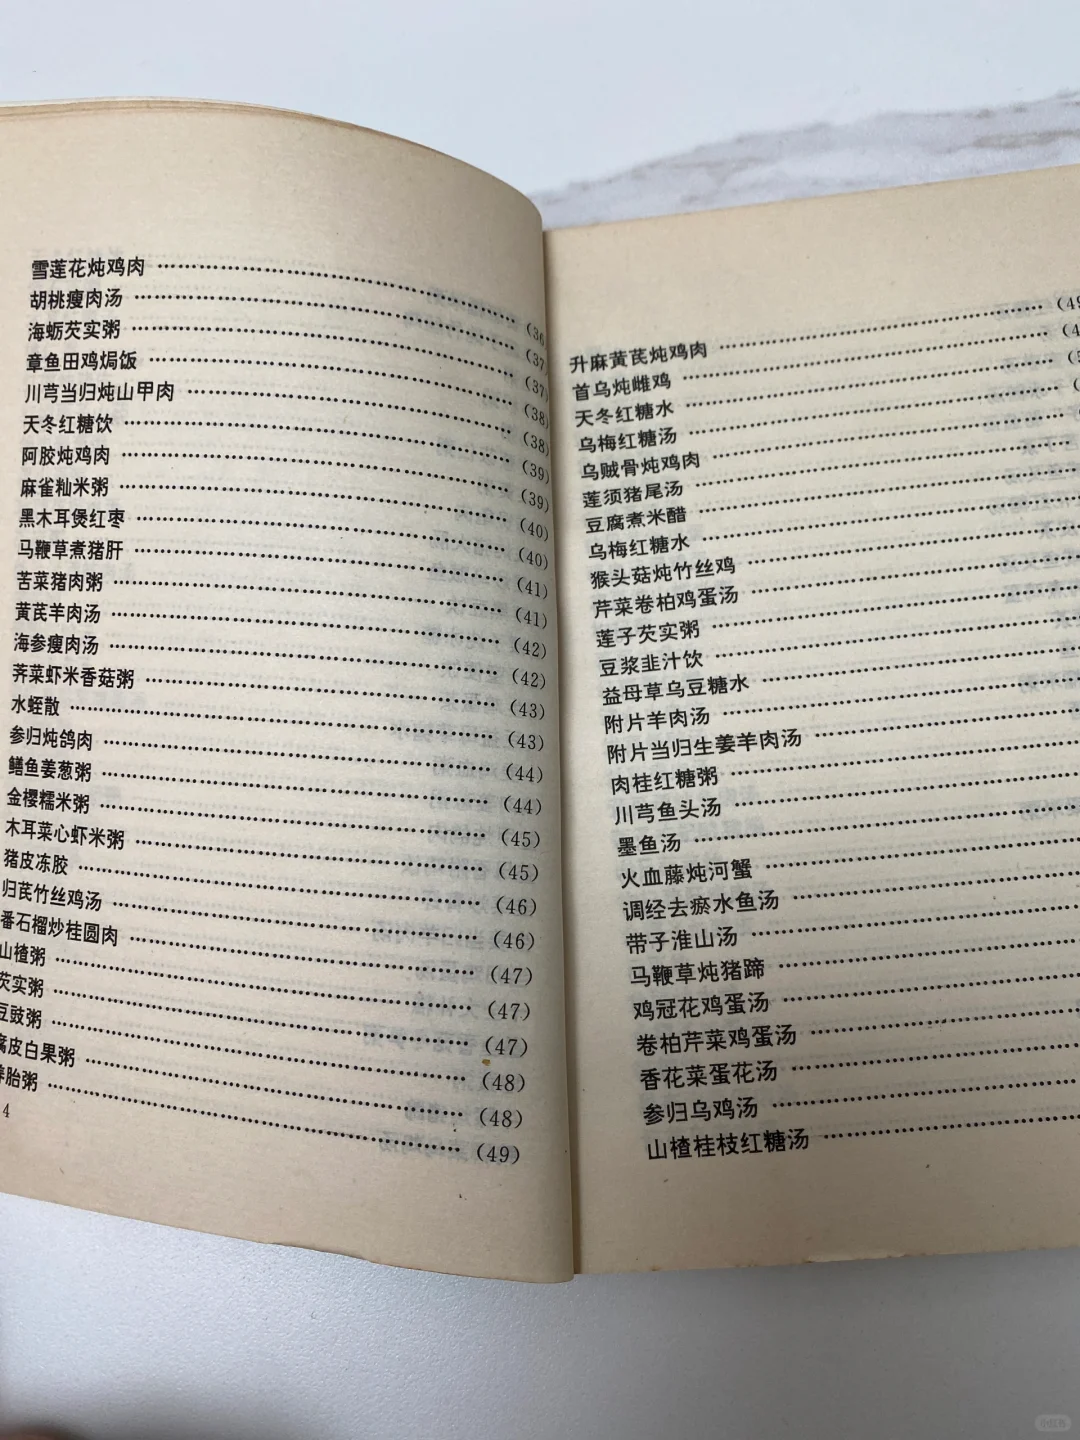 雪莲花炖鸡肉……(36
胡桃瘦肉汤……(37
海蛎芡实粥……(37
章鱼田鸡焗饭……(38
川芎当归炖山甲肉……(38)
天冬红糖饮……(39)
阿胶炖鸡肉……(39)
麻雀籼米粥……(40)
黑木耳煲红枣……(40)
马鞭草煮猪肝……(41)
苦菜猪肉粥……(41)
黄芪羊肉汤……(42)
海参瘦肉汤……(42)
荠菜虾米香菇粥……(43)
水蛭散……(43)
参归炖鸽肉……(44)
鳝鱼姜葱粥……(44)
金樱糯米粥……(45)
木耳菜心虾米粥……(45)
猪皮冻胶……(46)
归芪竹丝鸡汤……(46)
番石榴炒桂圆肉……(47)
山楂粥……(47)
芡实粥……(47)
豆豉粥……(48)
腐皮白果粥……(48)
胎粥……(49)
4
升麻黄芪炖鸡肉……(49
首乌炖雌鸡……(4
天冬红糖水……(5
乌梅红糖汤……(
乌贼骨炖鸡肉……
莲须猪尾汤……
豆腐煮米醋……
乌梅红糖水……
猴头菇炖竹丝鸡……
芹菜卷柏鸡蛋汤……
莲子芡实粥……
豆浆韭汁饮……
益母草乌豆糖水……
附片羊肉汤……
附片当归生姜羊肉汤……
肉桂红糖粥……
川芎鱼头汤……
墨鱼汤……
火血藤炖河蟹……
调经去瘀水鱼汤……
带子淮山汤……
马鞭草炖猪蹄……
鸡冠花鸡蛋汤……
卷柏芹菜鸡蛋汤……
香花菜蛋花汤……
参归乌鸡汤……
山楂桂枝红糖汤……
小红书